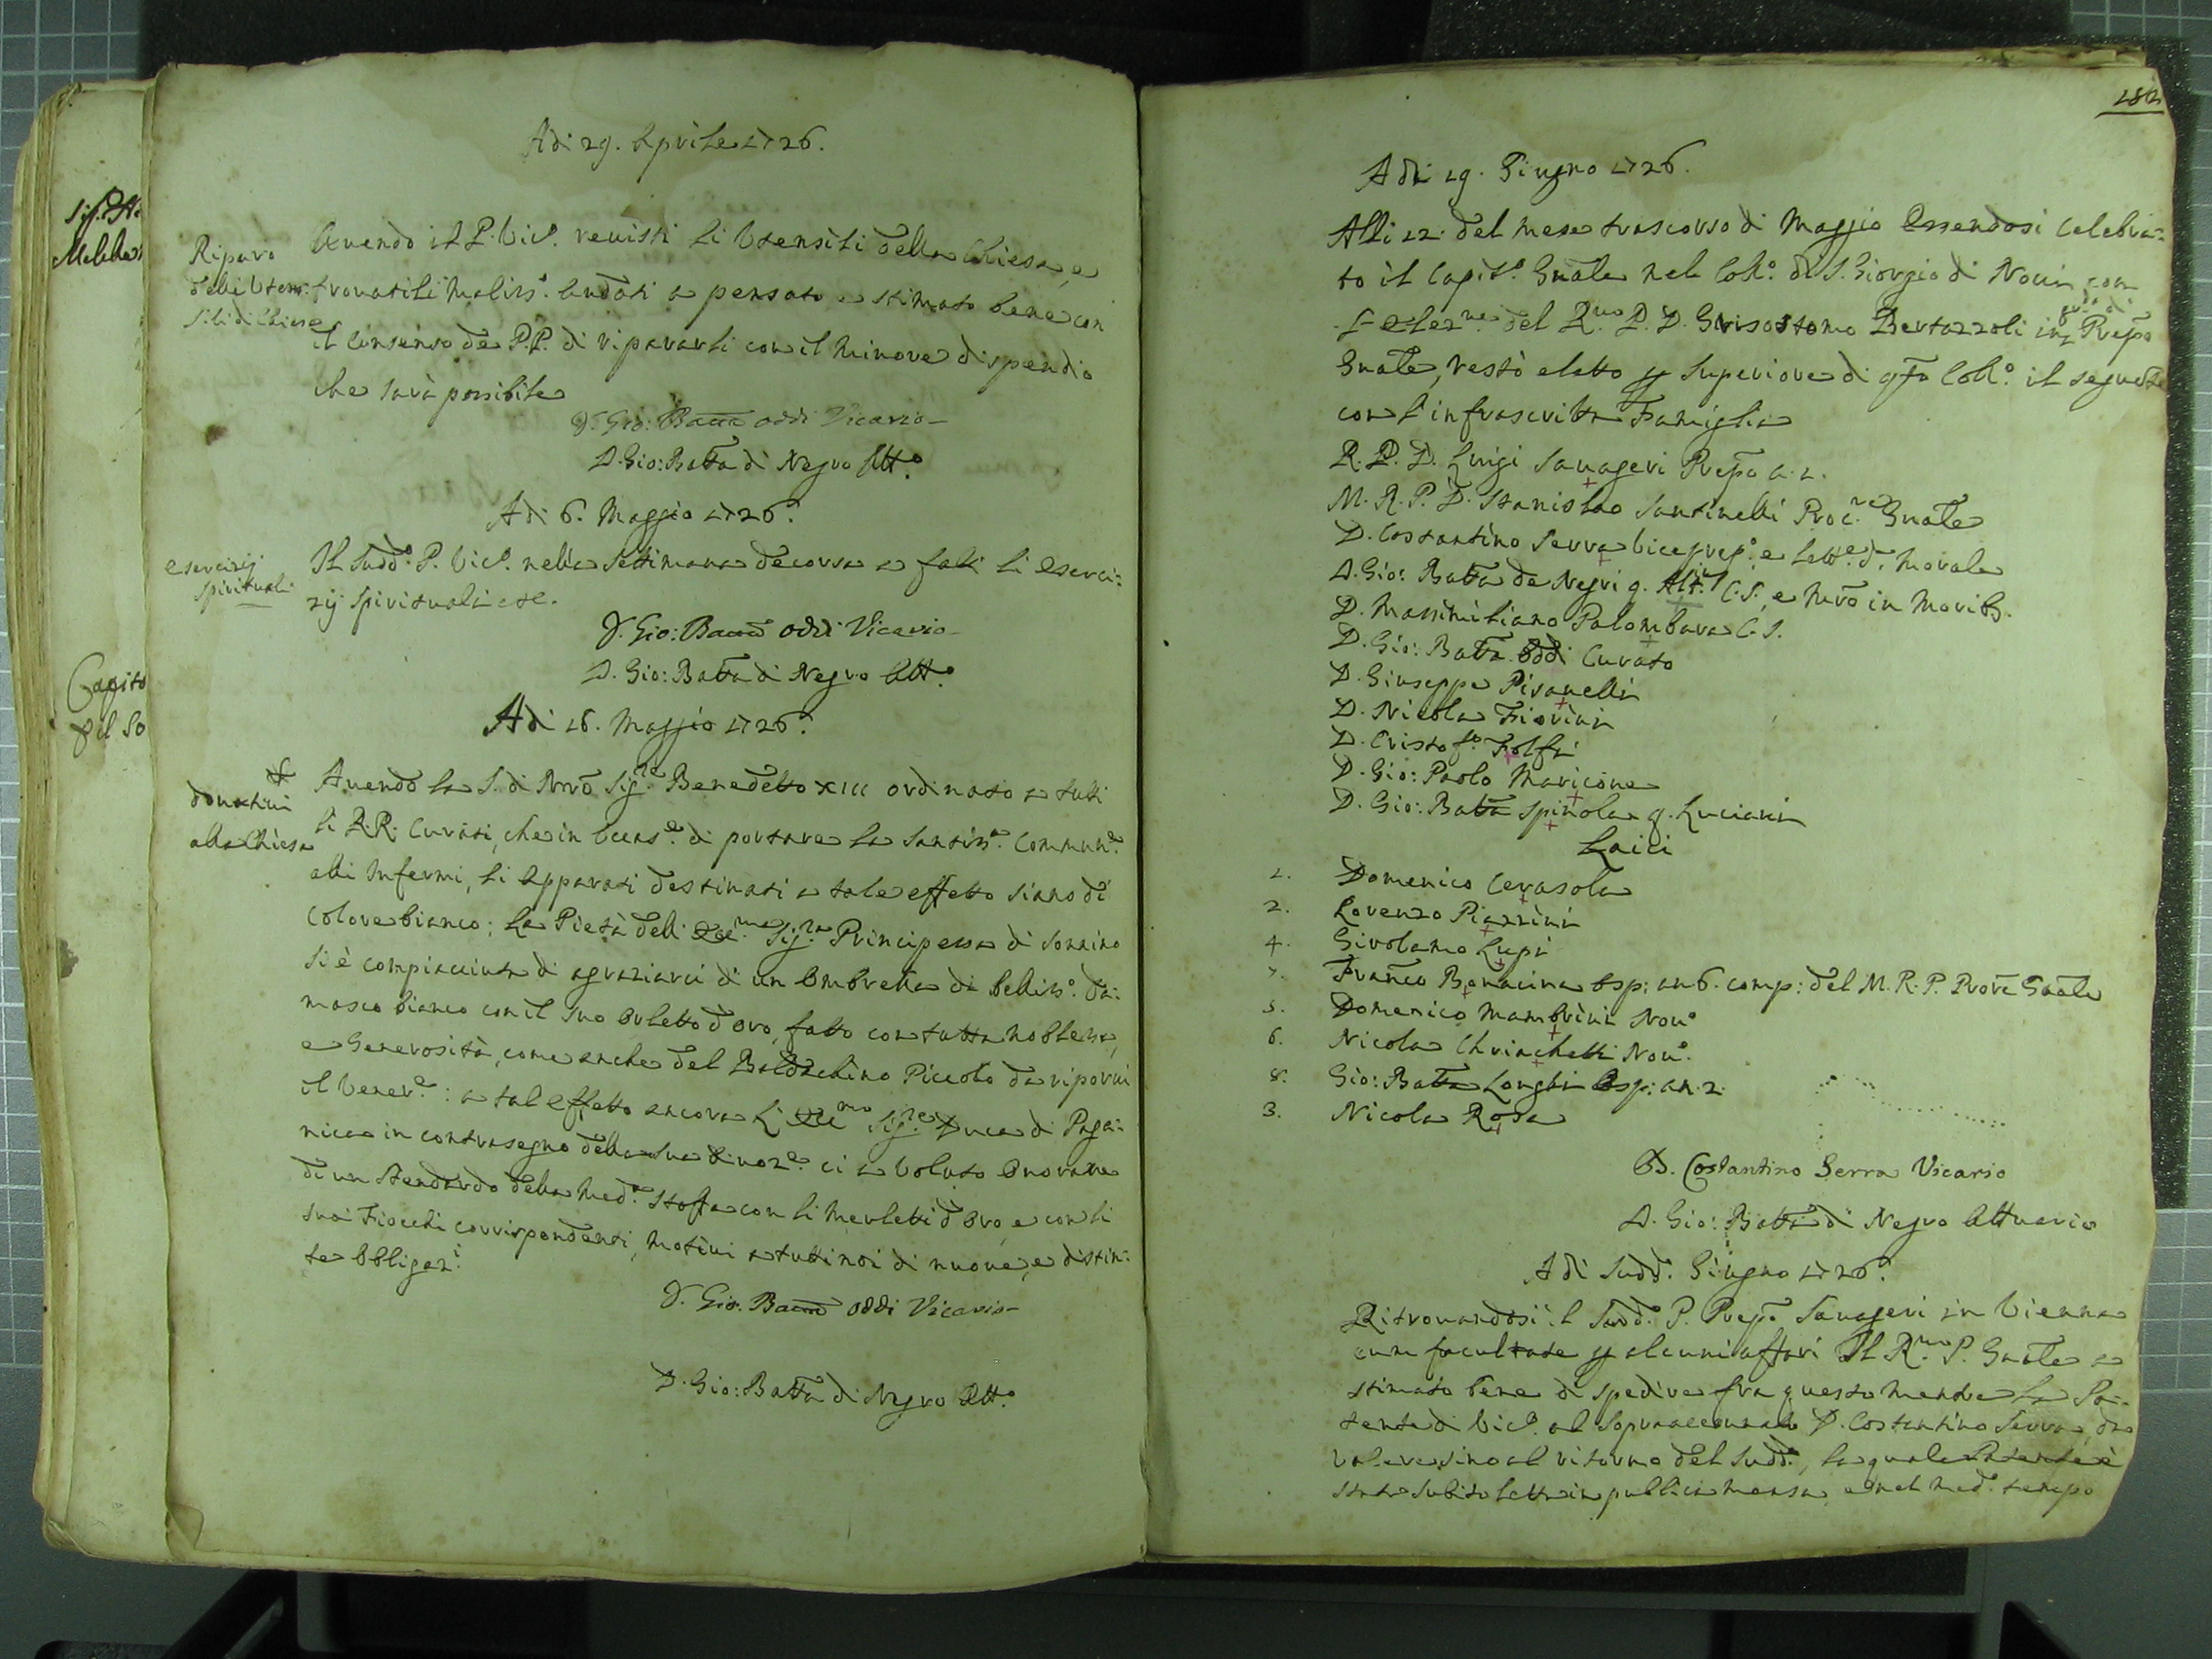 Adi 29. Aprile 1726.
Riparo
delli Uten:
sili di Chiesa
Avendo il P. Vic.º revisti li Utensili della Chiesa, e
trovatili malis.º andati a pensato e stimato bene con
il consenso de P.P. di ripararli con il minore dispendio
che sarà possibile
D. Gio: Batta Oddi Vicario
D. Gio: Batta di Negro Att.º
Adi 6. Maggio 1726.
esercizij
spirituali
Il Sudd.º P. Vic.º nella Settimana decorsa a fatti li Eserci:
zij Spirituali etc.
D. Gio: Batta Oddi Vicario
D. Gio: Batta di Negro Att.º
Adi 16. Maggio 1726.
donativi
alla Chiesa
Avendo la S. di Nro Sig.re Benedetto XIII ordinato a tutti
li R.R. Curati, che in occas.e di portare la Santis.a Commun.e
alli Infermi, li Apparati destinati a tale effetto siano di
Colore bianco; la Pietà dell Ecc.ma Sig.ra Principessa di Sonnino
si è compiacciuta di agraziarci di un Ombrella di bellis.º da:
masco bianco con il suo Orletto d'Oro, fatto con tutta nobleza,
e Generosità, come anche del Baldachino Piccolo da riporvi
il Vener.e: a tal effetto ancora L'Ecc.mo Sig.re Duca di Paga:
nica in contrasegno della sua divoz.e ci a voluto Onorare
di un Stendardo della med.a stoffa con li merletti d'Oro, e con li
suoi Fiocchi corrispondenti, motivi a tutti noi di nuove, e distin:
te Obligaz.i
D. Gio: Batta Oddi Vicario
D. Gio: Batta di Negro Att.º
Sig.
Capito
Adi 19. Giugno 1726.
Alli 12. del mese trascorso di Maggio Essendosi Celebra:
to il Capit.º Gnale nel Coll.º di S. Giorgio di Novi, con
l'elez.ne del R.mo P. D. Grisostomo Bertazzoli in Prepo
Gnale, restò eletto p Superiore di qto Coll.º il seguente
con l'infrascritta Famiglia
R. P. D. Luigi Savageri Prepo a. 1.
M. R. P. D. Stanislao Santinelli Proc.re Gnale
D. Costantino Serra Viceprep.º e Lett.e di Morale
D. Gio: Batta de Negri q. Att. C.S., e Mro in Morib.
D. Massimiliano Palombara C.S.
D. Gio: Batta Oddi Curato
D. Giuseppe Pisanelli
D. Nicola Fiorini
D. Cristof.º Folfi
D. Gio: Paolo Maricone
D. Gio: Batta Spinola q. Luciani
Laici
1. Domenico Cerasola
2. Lorenzo Piazzini
4. Girolamo Lupi
7. Franco Bonacina Osp: an 6. comp: del M. R. P. Prore Gnale
5. Domenico Mambrini Nov.º
6. Nicola Chriachetti Nov.º
8. Gio: Batta Longhi Osp: an. 2.
3. Nicola Rosa
D. Costantino Serra Vicario
D. Gio: Batta di Negro Attuario
Adi Sudd.º Giugno 1726.
Ritrovandosi il Sudd.º P. Prep.º Savageri in Vienna
cum facultate p alcuni affari Il R.mo P. Gnale a
stimato bene di spedire fra questo mentre la Pa:
tente di Vic.º al Sopraaccennato D. Costantino Serra, da
valere sino al ritorno del Sudd.º, la quale Patente è
stata subito letta in publica mensa, e nel med.º tempo